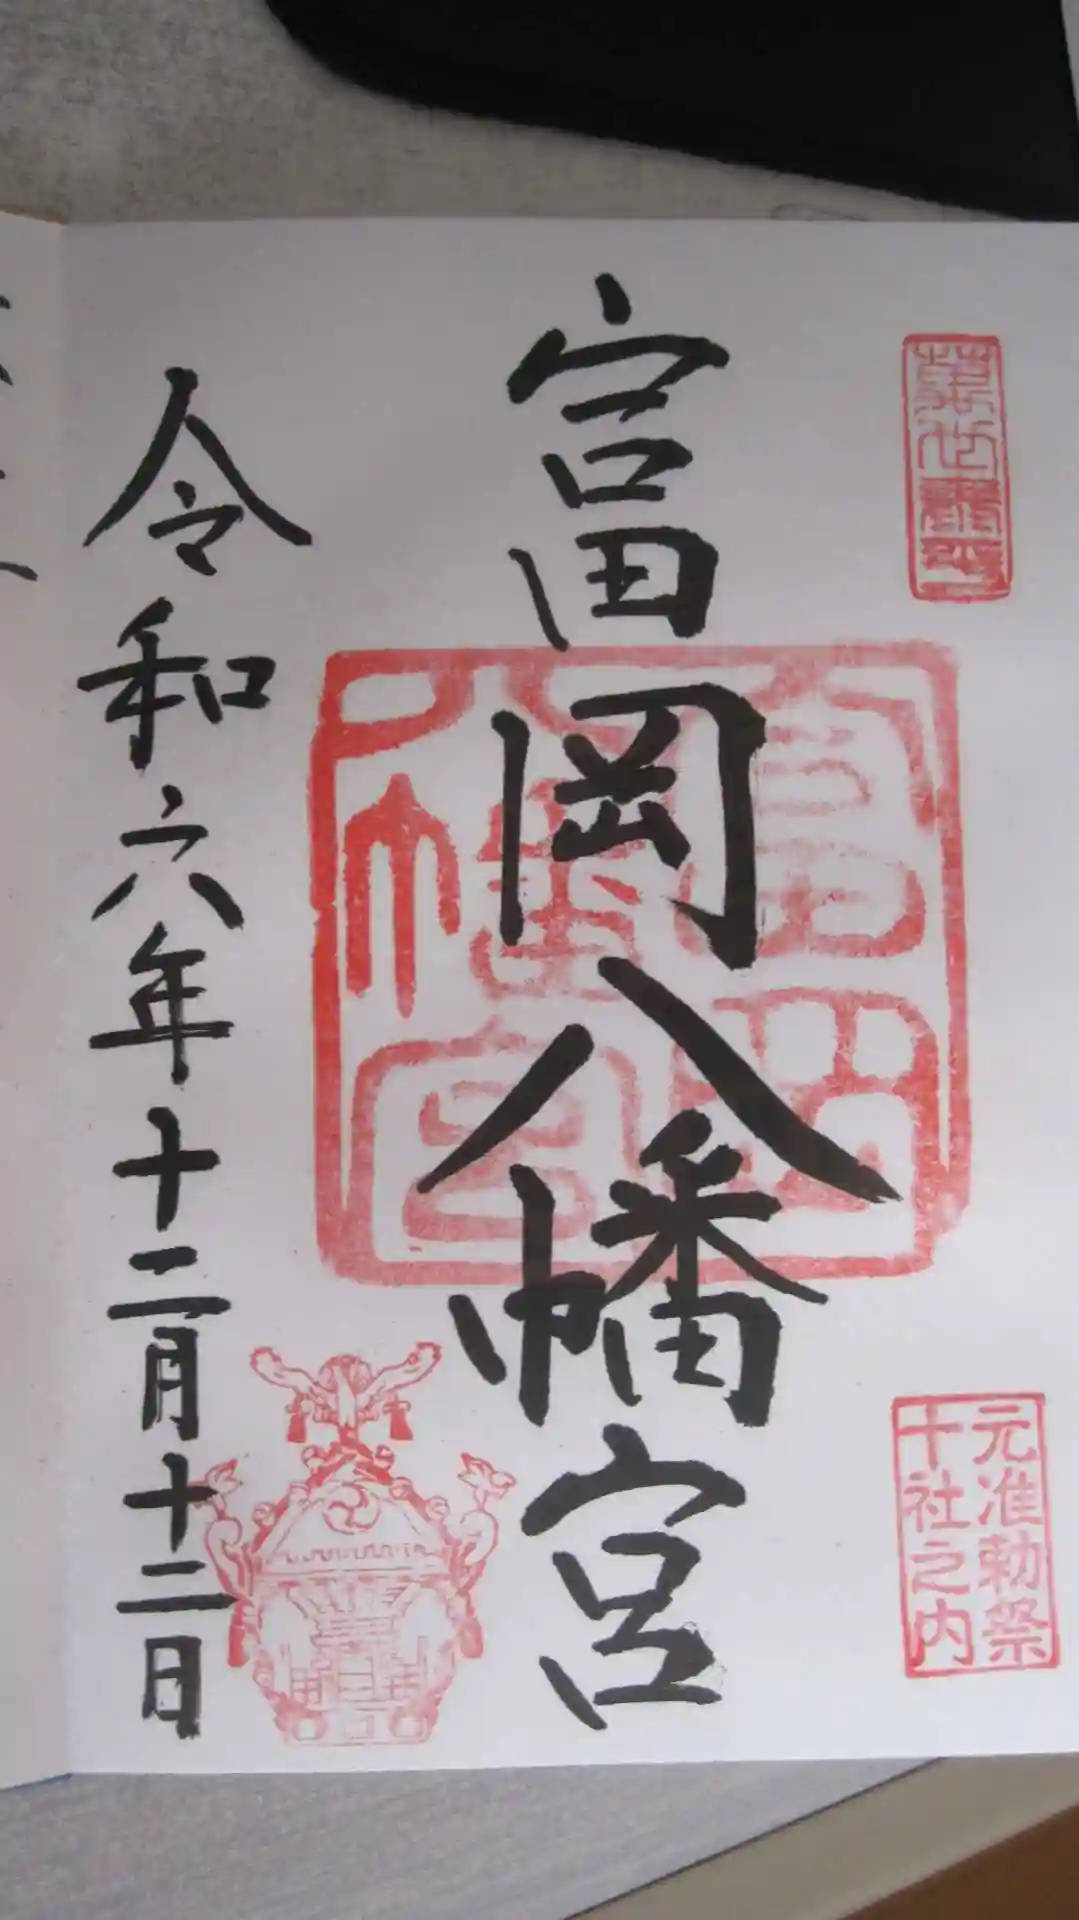 元准勅祭
十社之内
富岡八幡宮
富岡
八幡宮
令和六年十二月十二日